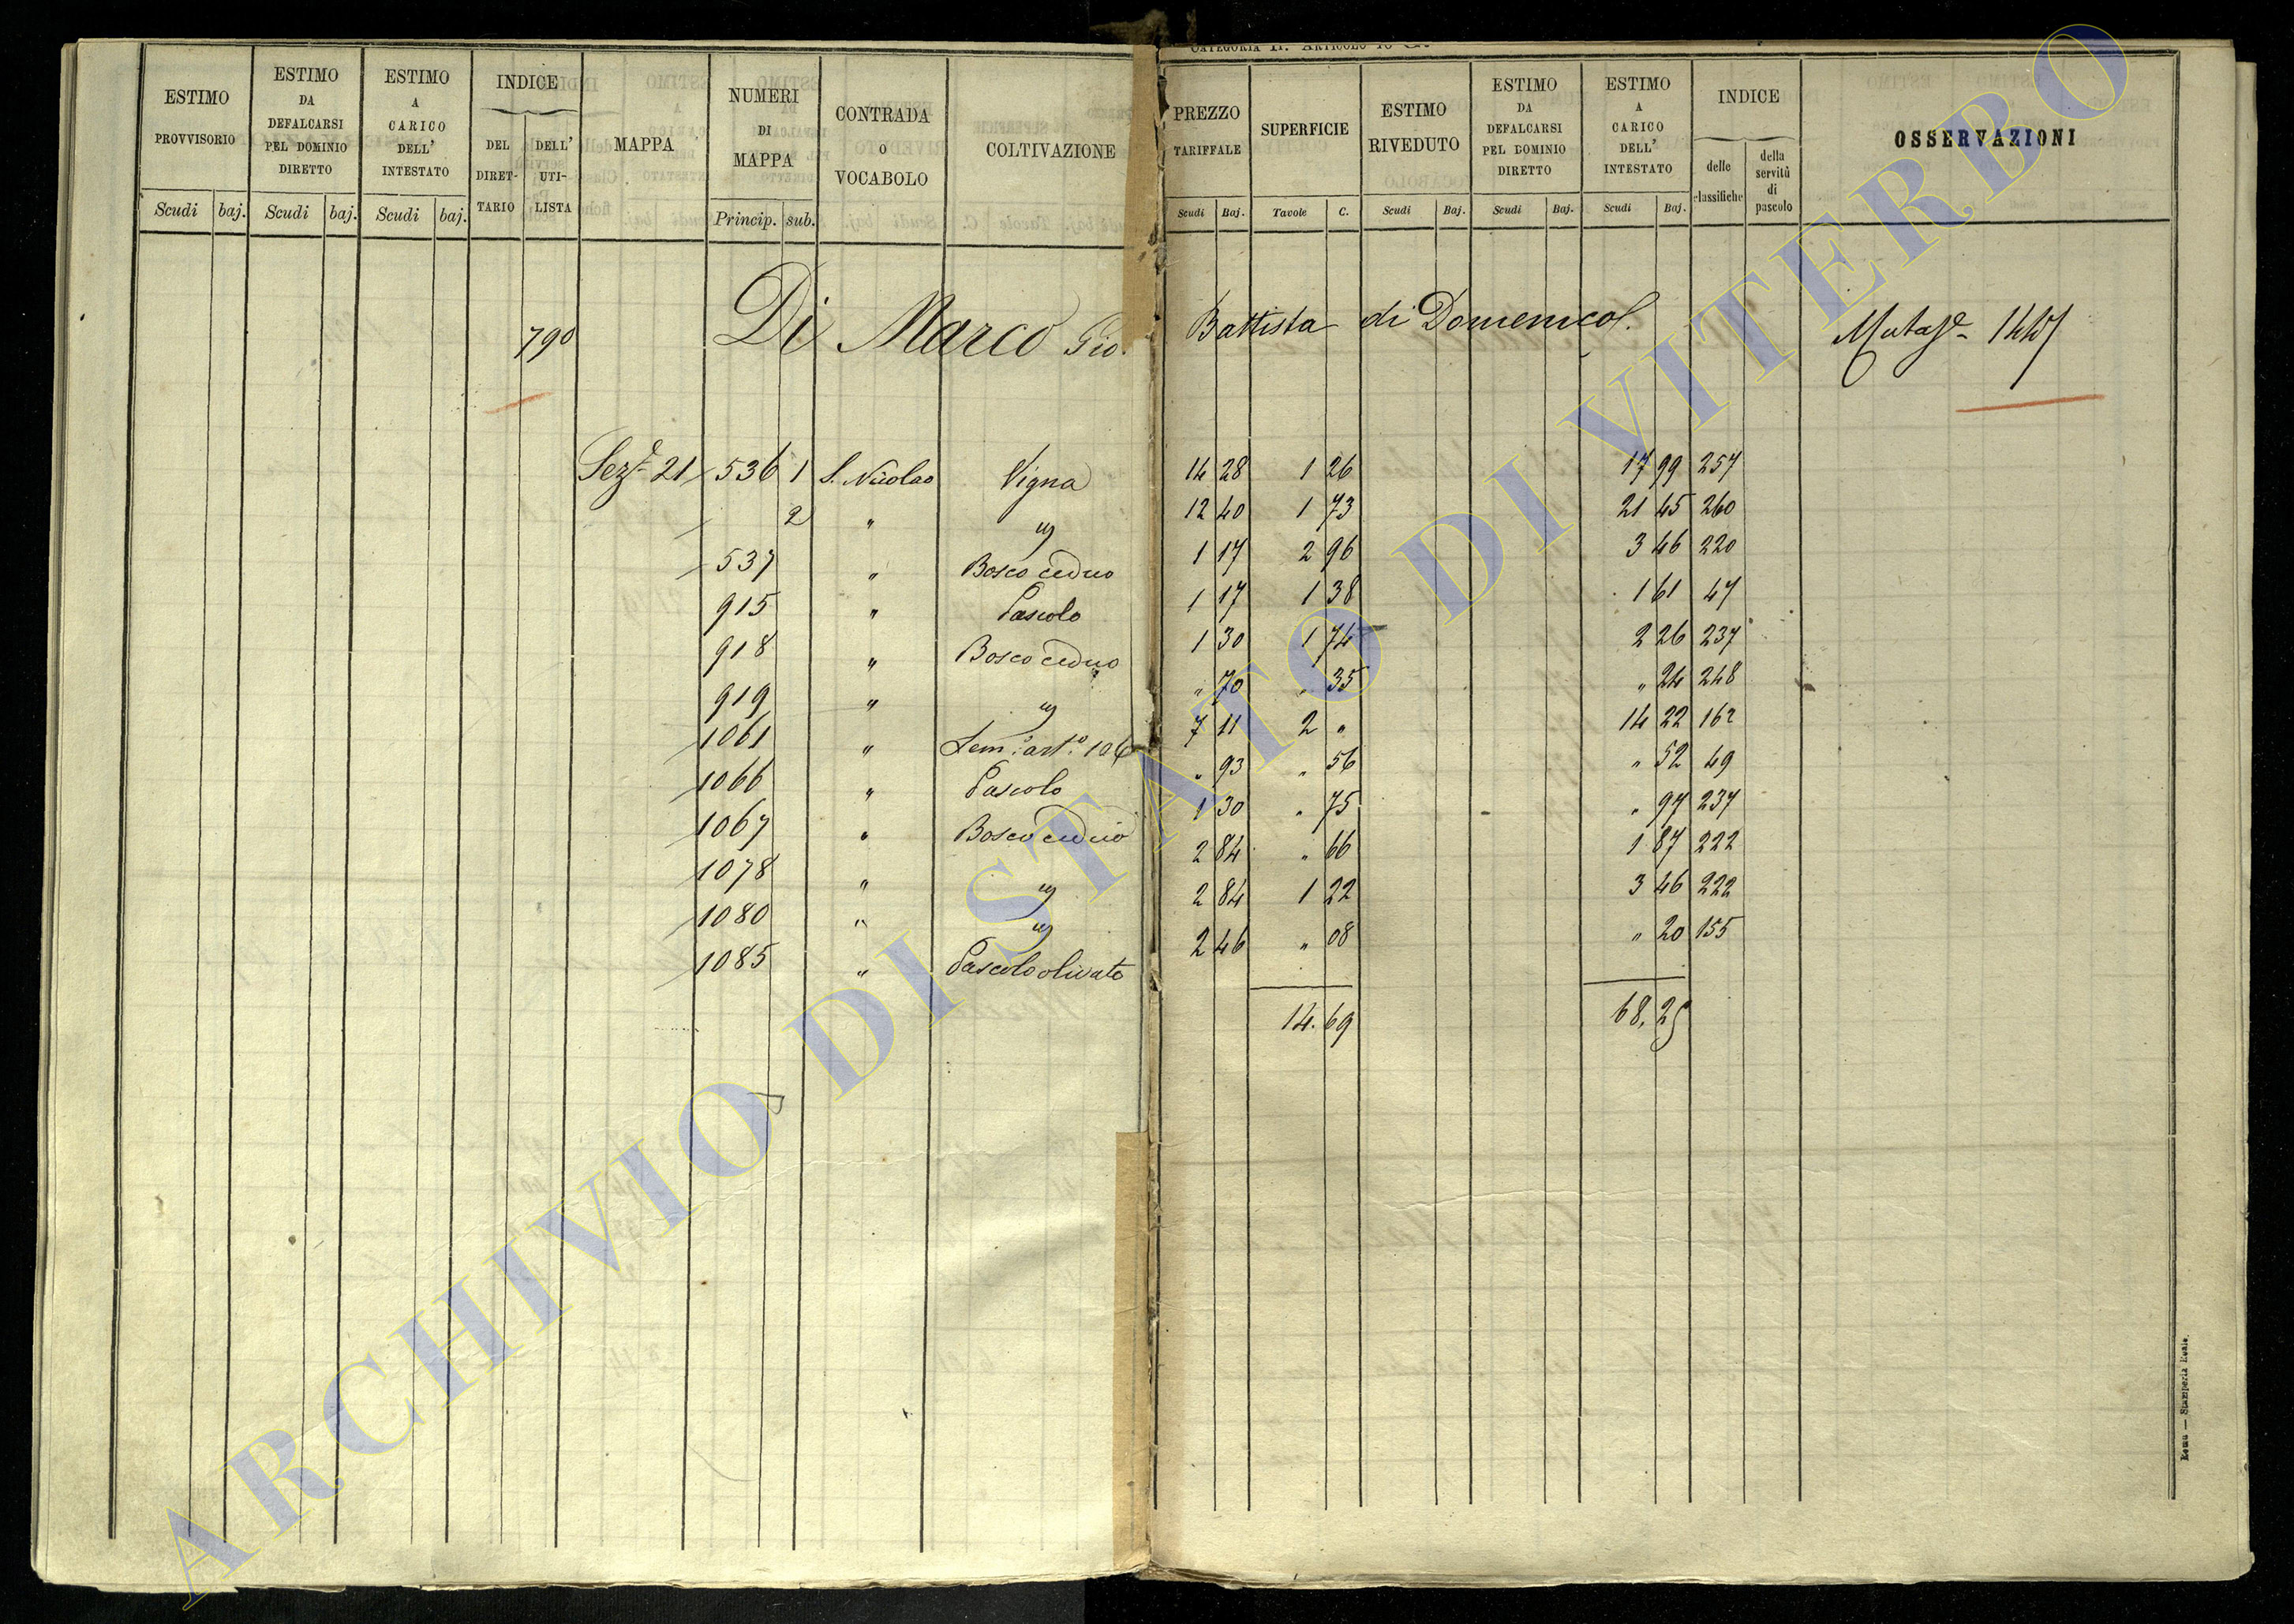 CATEGORIA II. ARTICOLO 10 G.
ESTIMO PROVVISORIO ESTIMO DA DEFALCARSI PEL DOMINIO DIRETTO ESTIMO A CARICO DELL' INTESTATO INDICE DEL DIRETTARIO DELL' UTILISTA MAPPA NUMERI DI MAPPA CONTRADA O VOCABOLO COLTIVAZIONE PREZZO TARIFFALE SUPERFICIE ESTIMO RIVEDUTO ESTIMO DA DEFALCARSI PEL DOMINIO DIRETTO ESTIMO A CARICO DELL' INTESTATO INDICE delle classifiche della servitù di pascolo OSSERVAZIONI
Scudi baj. Scudi baj. Scudi baj. Princip. sub. Scudi Baj. Tavole C. Scudi Baj. Scudi Baj. Scudi Baj.
790 Di Marco Gio. Battista di Domenico
Sez.e 21 536 1 S. Nicolao Vigna 14 28 1 26 17 99 257
2 " " 12 40 1 73 21 45 260
537 " Bosco ceduo 1 17 2 96 3 46 220
915 " Pascolo 1 17 1 38 1 61 47
918 " Bosco ceduo 1 30 1 74 2 26 237
919 " " " 70 " 35 " 24 248
1061 " Sem.o art.o 106 7 11 2 " 14 22 162
1066 " Pascolo " 93 " 56 " 52 49
1067 " Bosco ceduo 1 30 " 75 " 97 237
1078 " " 2 84 " 66 1 87 222
1080 " " 2 84 1 22 3 46 222
1085 " Pascolo olivato 2 46 " 08 " 20 155
14. 69 68. 25
Roma — Stamperia Reale.
ARCHIVIO DI STATO DI VITERBO